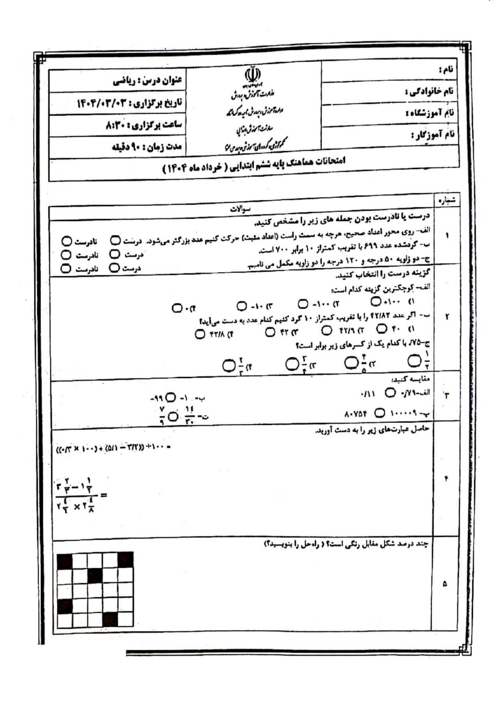 نام :
نام خانوادگی :
نام آموزشگاه :
نام آموزگار :
عنوان درس : ریاضی
تاریخ برگزاری : ۱۴۰۴/۰۳/۰۳
ساعت برگزاری : ۸:۳۰
مدت زمان : ۹۰ دقیقه
امتحانات هماهنگ پایه ششم ابتدایی ( خرداد ماه ۱۴۰۴ )
شماره
سوالات
۱
درست یا نادرست بودن جمله های زیر را مشخص کنید.
الف- روی محور اعداد صحیح، هرچه به سمت راست (اعداد مثبت) حرکت کنیم عدد بزرگتر می‌شود. درست نادرست
ب- گردشده عدد ۶۹۹ با تقریب کمتراز ۱۰ برابر ۷۰۰ است. درست نادرست
ج- دو زاویه ۵۰ درجه و ۱۲۰ درجه را دو زاویه مکمل می نامیم. درست نادرست
۲
گزینه درست را انتخاب کنید.
الف- کوچکترین گزینه کدام است:
۱) ۱۰۰+ ۲) ۱۰۰- ۳) ۱۰- ۴) ۰
ب- اگر عدد ۴۲/۸۲ را با تقریب کمتراز ۱۰ گرد کنیم کدام عدد به دست می‌آید؟
۱) ۴۰ ۲) ۴۲/۹ ۳) ۴۲ ۴) ۴۲/۸
ج- ۰/۷۵ با کدام یک از کسرهای زیر برابر است؟
۱) ۱/۲ ۲) ۴/۵ ۳) ۳/۴ ۴) ۲/۳
۳
مقایسه کنید:
الف- ۰/۷۹ ۰/۱۱ ب- ۱- ۹۹-
پ- ۱۰۰۰۰۹ ۸۰۷۵۴ ت- ۱۴/۳۰ ۷/۹
۴
حاصل عبارت‌های زیر را به دست آورید.
((۰/۳ × ۱۰۰) + (۵/۱ − ۳/۲)) ÷ ۱۰۰ =
۵
چند درصد شکل مقابل رنگی است؟ ( راه‌حل را بنویسید؟)